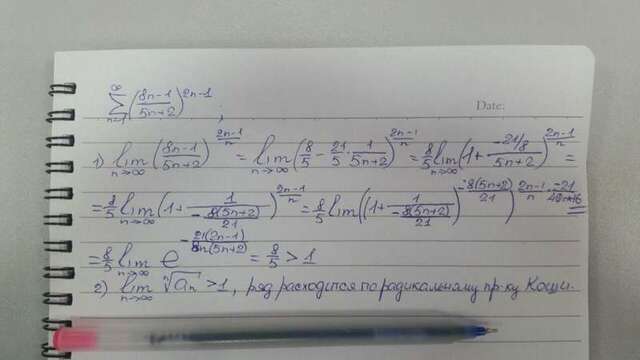 ∞∑n=1 ((8n-1)/(5n+2))^(2n-1);
Date:
1) lim n→∞ ((8n-1)/(5n+2))^((2n-1)/n) = lim n→∞ (8/5 - 21/5 · 1/(5n+2))^((2n-1)/n) = 8/5 lim n→∞ (1+ (-21/8)/(5n+2))^((2n-1)/n) =
= 8/5 lim n→∞ (1+ 1/(-8(5n+2)/21))^((2n-1)/n) = 8/5 lim ((1+ 1/(-8(5n+2)/21))^(-8(5n+2)/21))^((2n-1)/n · -21/(40n+16)) =
= 8/5 lim n→∞ e^(-21(2n-1)/(8n(5n+2))) = 8/5 > 1
2) lim n→∞ ⁿ√aₙ > 1, ряд расходится по радикальному пр-ку Коши.